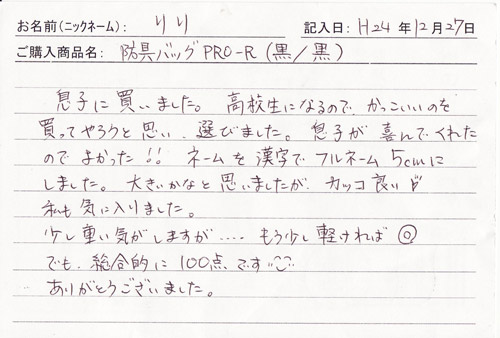 お名前(ニックネーム): りり 記入日: H24 年 12 月 27 日
ご購入商品名: 防具バッグPRO-R(黒/黒)
息子に買いました。高校生になるので、かっこいいのを
買ってやろうと思い、選びました。息子が喜んでくれた
のでよかった!! ネームを漢字でフルネーム5cmに
しました。大きいかなと思いましたが、カッコ良い
私も気に入りました。
少し重い気がしますが.... もう少し軽ければ◎
でも、総合的に100点です
ありがとうございました。